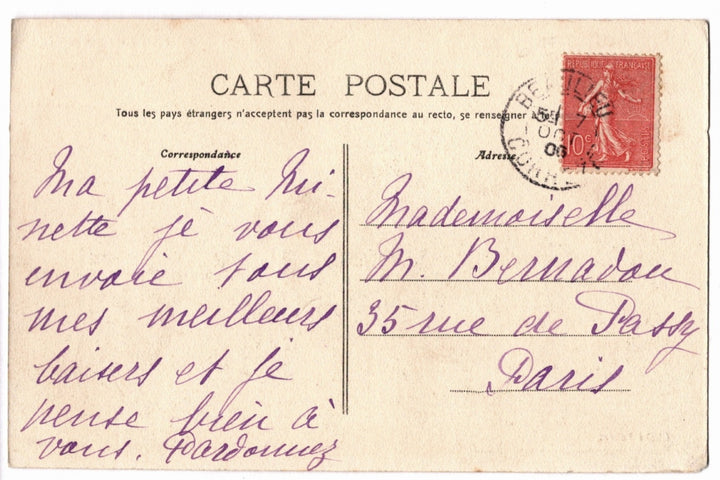 CARTE POSTALE
Tous les pays étrangers n'acceptent pas la correspondance au recto, se renseigner à
Correspondance
Adresse
REPUBLIQUE FRANÇAISE
10c
BEAULIEU
7
OCT
06
CORR
Ma petite Mi-
nette je vous
envoie tous
mes meilleurs
baisers et je
pense bien à
vous. Dardonnez
Mademoiselle
M. Bernadou
35 rue de Passy
Paris